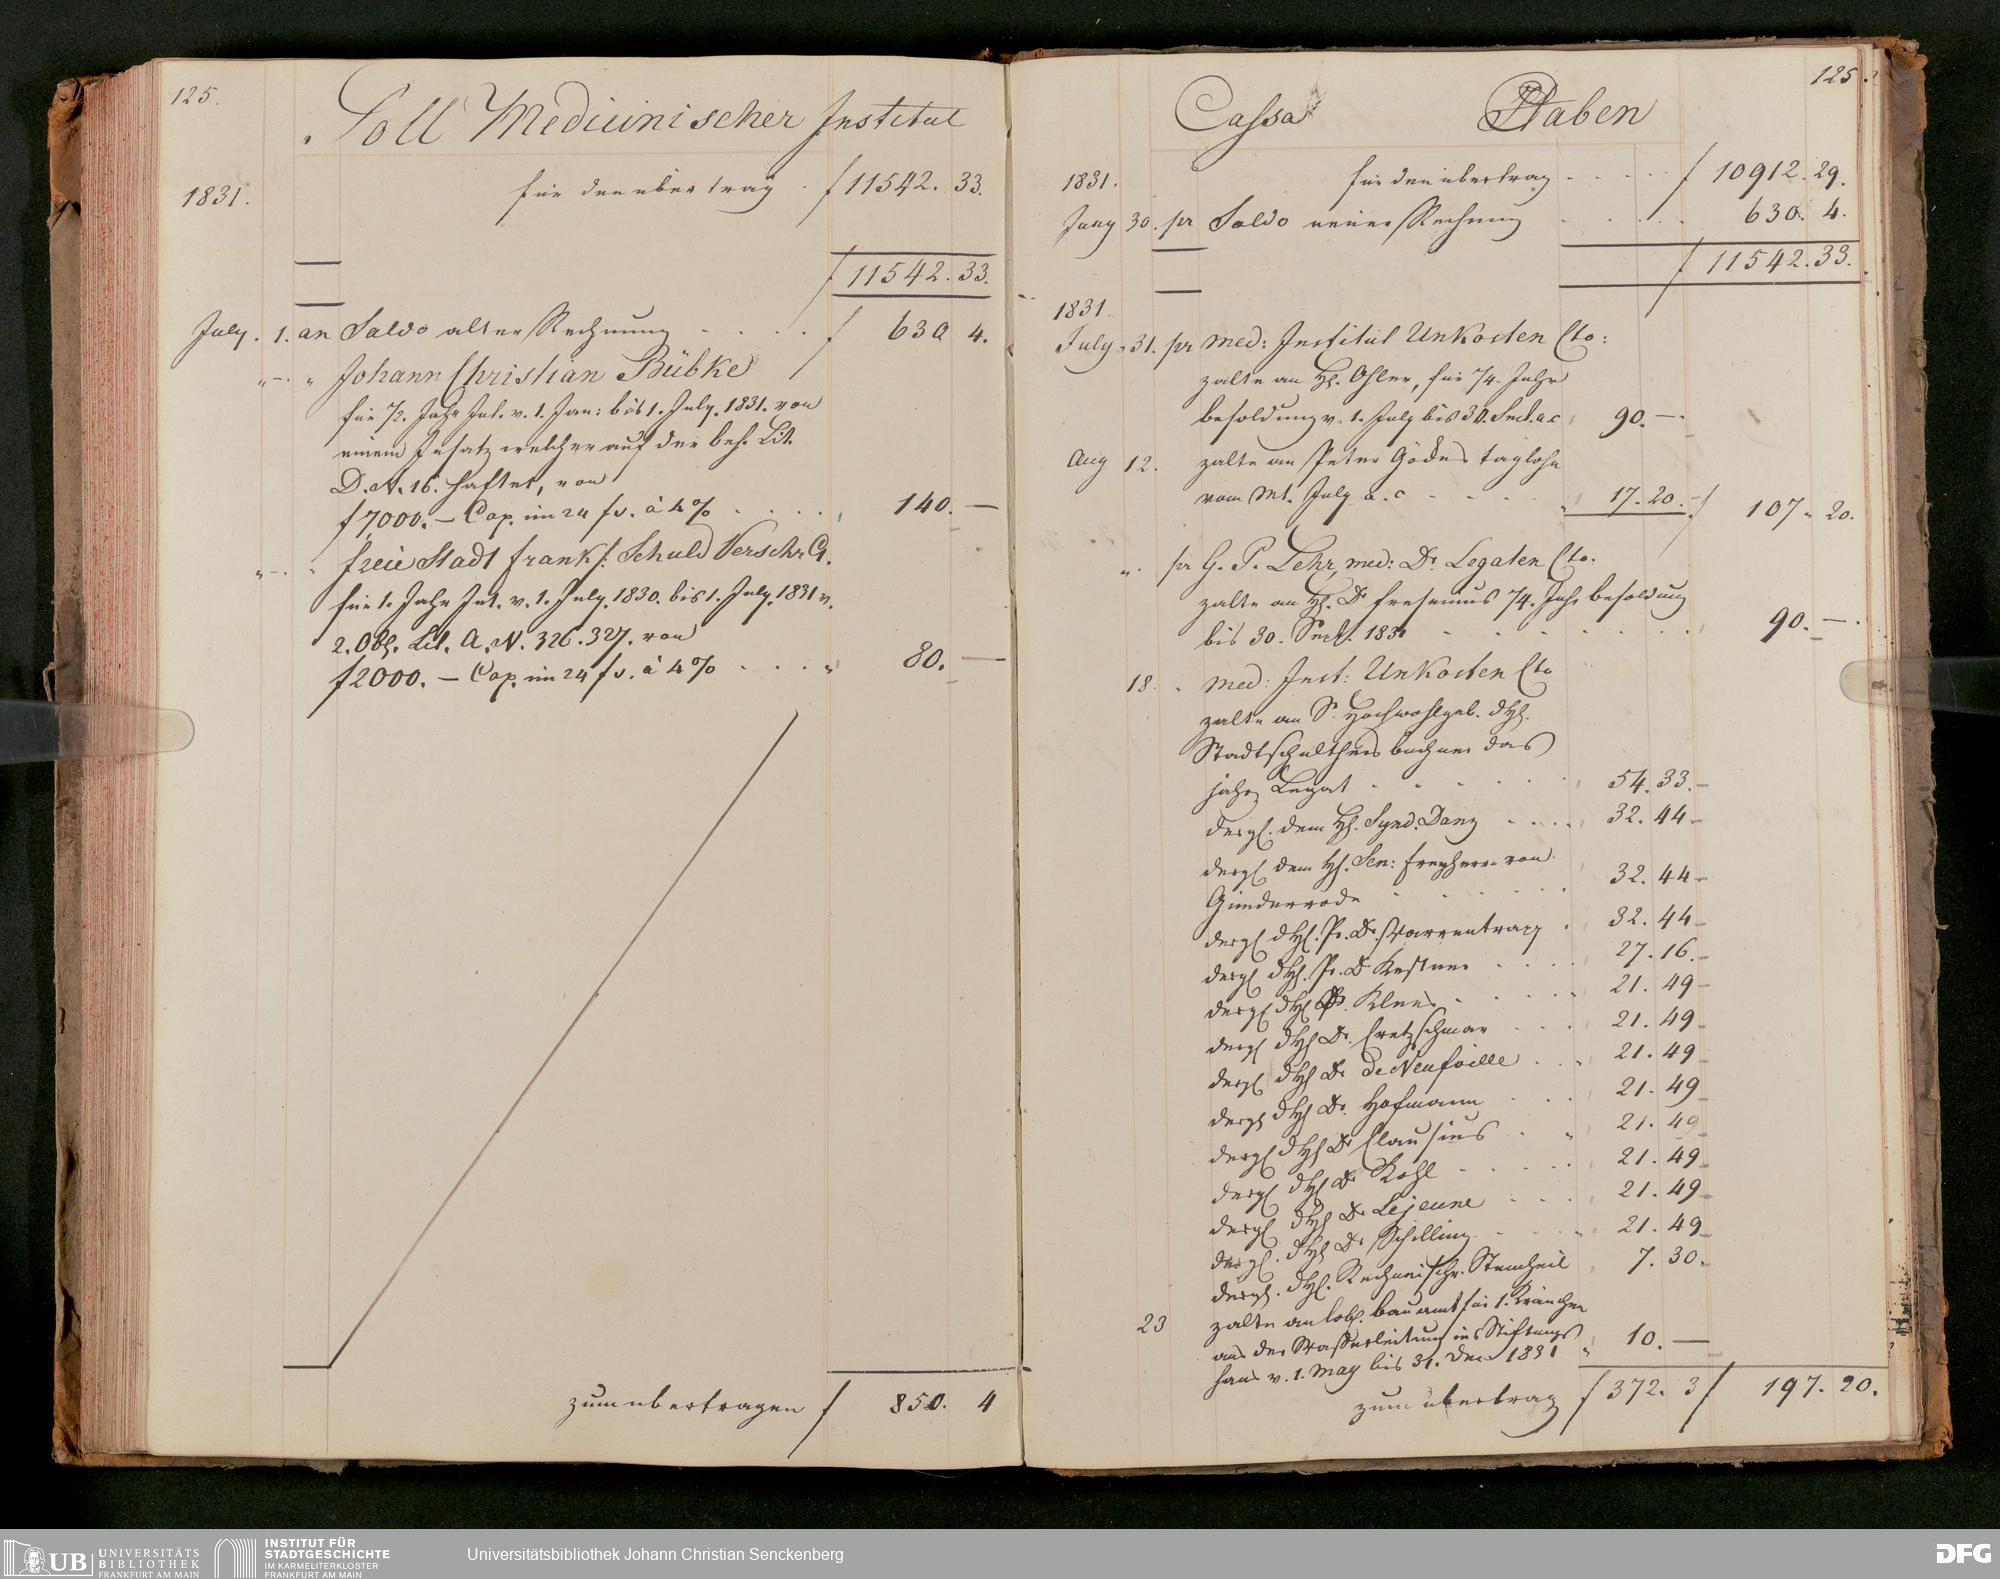 125.
Soll Medicinischer Institut
1831. für den übertrag . f 11542. 33.
f 11542. 33.
July. 1. an Saldo alter Rechnung . . . . f 630 4.
" - . " Johann Christian Bübke
für 1/2. Jahr Int. v. 1. Jan: bis 1. July. 1831. von
einem Insatz welcher auf der beh. Lit.
D. N. 16. haftet, von
f 7000. — Cap. im 24 fs. à 4% . . . . 140. —
" - . " freie Stadt Frankf. Schuld Verschr.
für 1. Jahr Int. v. 1. July. 1830. bis 1. July. 1831 v.
2. Obl. Lit. A. N. 326. 327. von
f 2000. — Cap. im 24 fs. à 4% . . . . " 80. —
zum übertragen f 850. 4
125.
Cassa Haben
1831. für den übertrag - - - - - f 10912. 29.
Juny 30. pr Saldo neuer Rechnung . . . . 630. 4.
f 11542. 33.
1831.
July. 31. pr med: Institut Unkosten Cto:
zalte an H. Ohler, für 1/4. Jahr
besoldung v. 1. July bis 30. Sept. a. c 90. —
Aug 12. zalte an Peter Gödes taglohn
vom Mt. July a. c - - - - 17. 20. f 107 " 20.
" . pr G. P. Lehr, med: Dr. Legaten Cto.
zalte an H. Dr Fresenius 1/4. Jahr besoldung
bis 30. Sept. 1831 - - - - - 90. —
18. " med: Inst: Unkosten Cto
zalte an S. Hochwohlgeb. d H.
Stadtschultheis büchner das
jahrg Legat - - - - 54. 33. -
dergl. dem H. Synd. Danz - . . . 32. 44 -
dergl dem H. Sen: freyherr von
Günderrode - - - - 32. 44 -
dergl d H. Pr. Dr. Warrentrapp . 32. 44 -
dergl d H. Pr. D Kestner . . . . 27. 16. -
dergl d H Klees . . . . 21. 49 -
dergl d H Dr. Cretzschmar . . . 21. 49
dergl d H Dr de Neufville . . 21. 49
dergl d H Dr. Hofmann . . . 21. 49
dergl d H Dr Clausius . " 21. 49
dergl d H Dr Kohl . . . . 21. 49
dergl d H Dr Lejeune . . . 21. 49
dergl. d H Dr Schilling . . . 21. 49
dergl. d H. Rechneischr. Steinheil 7. 30.
23 zalte an lobl. bauamt für 1. Kränchen
aus der Wasserleitung ins Stiftungs
haus v. 1. May bis 31. Dec 1831 " 10. —
zum übertrag f 372. 3 f 197. 20.
UB UNIVERSITÄTS
BIBLIOTHEK
FRANKFURT AM MAIN
INSTITUT FÜR
STADTGESCHICHTE
IM KARMELITERKLOSTER
FRANKFURT AM MAIN
Universitätsbibliothek Johann Christian Senckenberg
DFG